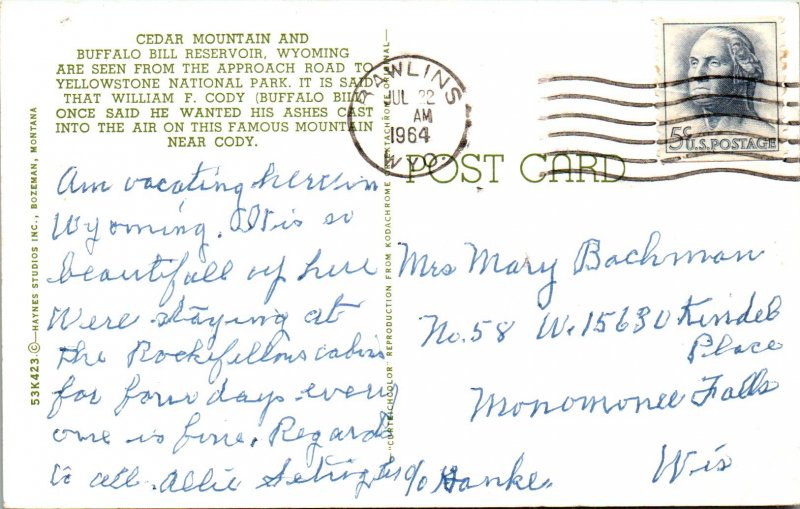 CEDAR MOUNTAIN AND
BUFFALO BILL RESERVOIR, WYOMING
ARE SEEN FROM THE APPROACH ROAD TO
YELLOWSTONE NATIONAL PARK. IT IS SAID
THAT WILLIAM F. CODY (BUFFALO BILL)
ONCE SAID HE WANTED HIS ASHES CAST
INTO THE AIR ON THIS FAMOUS MOUNTAIN
NEAR CODY.
53K423 ©—HAYNES STUDIOS INC., BOZEMAN, MONTANA
Am vacating here in
Wyoming. It is so
beautifull up here
Were staying at
the Rockifellous cabin
for four days every
one is fine. Regards
to all. Allie
"CURTEICHCOLOR" REPRODUCTION FROM KODACHROME OR EKTACHROME ORIGINAL—
RAWLINS
JUL 22
AM
1964
WYO
5¢ U.S. POSTAGE
POST CARD
Mrs Mary Bachman
No. 58 W. 15630 Kindel
Place
Monomonee Falls
Wis
c/o Hanke.